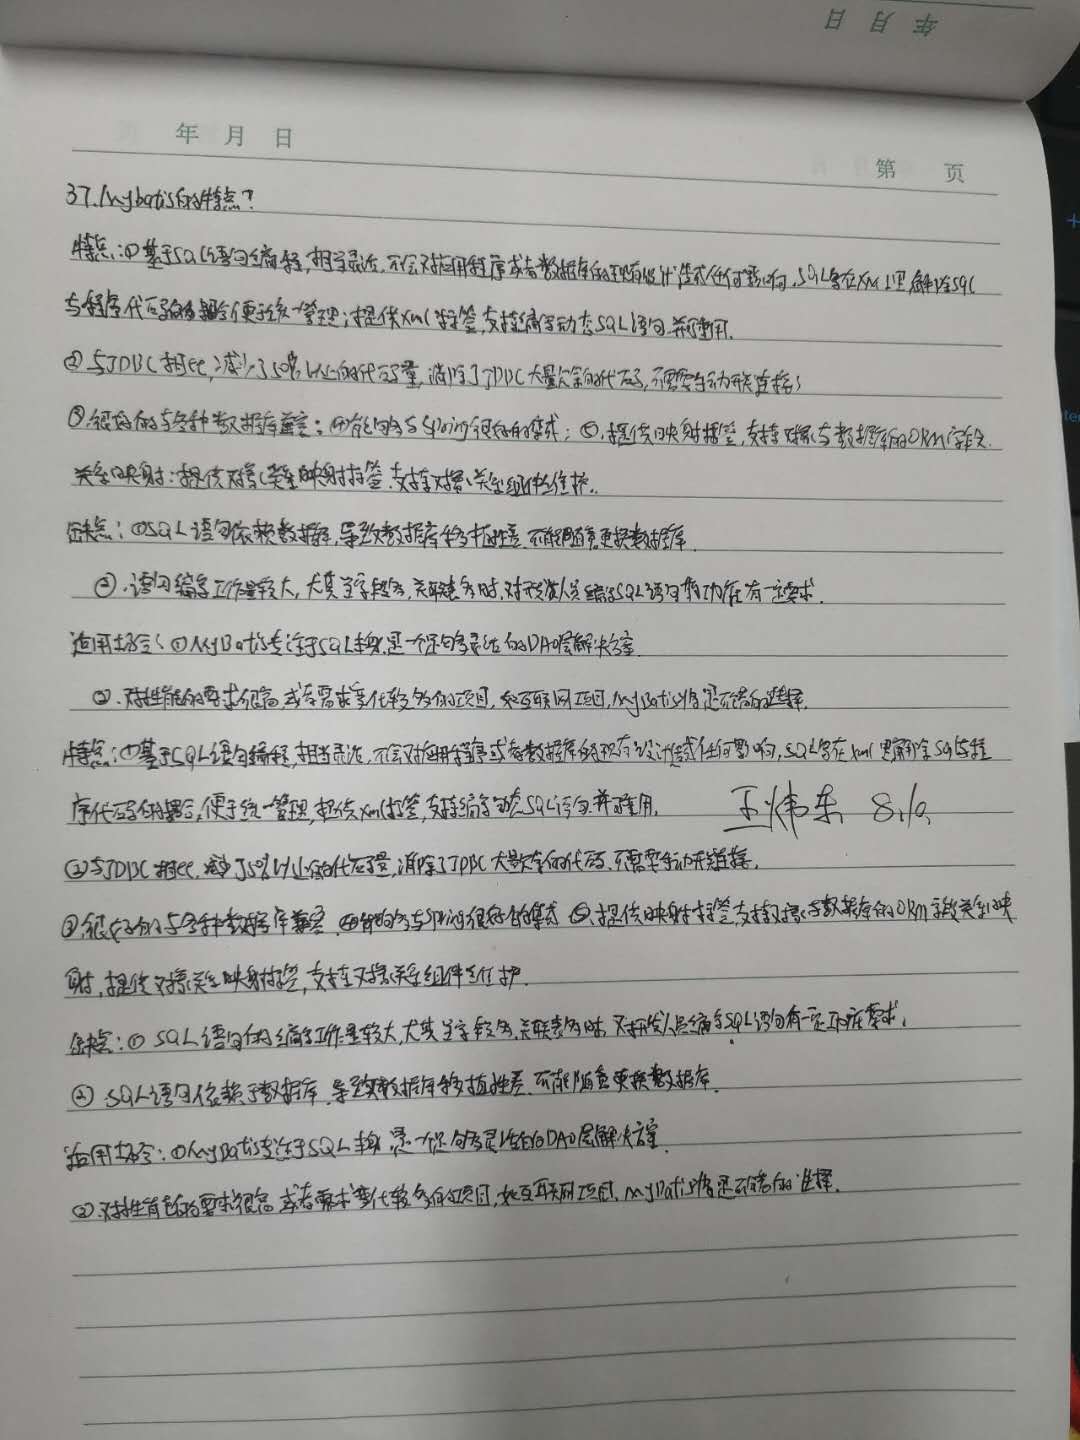 年 月 日
年 月 日
第 页
37. Mybatis的特点?
特点:①基于SQL语句编程,相当灵活,不会对应用程序或者数据库的现有设计造成任何影响,SQL写在XML里,解除sql
与程序代码的耦合,便于统一管理;提供xml标签,支持编写动态SQL语句,并可重用.
②与JDBC相比,减少了50%以上的代码量,消除了JDBC大量冗余的代码,不需要手动开关连接;
③很好的与各种数据库兼容;④能够与Spring很好的集成;⑤.提供映射标签,支持对象与数据库的ORM字段
关系映射;提供对象关系映射标签,支持对象关系组件维护.
缺点:①SQL语句依赖数据库,导致数据库移植性差,不能随意更换数据库.
②.语句编写工作量较大,尤其是字段多,关联表多时,对开发人员编写SQL语句的功底有一定要求.
适用场合:①MyBatis专注于SQL本身,是一个足够灵活的DAO层解决方案.
②.对性能的要求很高,或者需求变化较多的项目,如互联网项目,MyBatis将是不错的选择.
特点:①基于SQL语句编程,相当灵活,不会对应用程序或者数据库的现有设计造成任何影响,SQL写在xml里,解除sql与程
序代码的耦合,便于统一管理,提供xml标签,支持编写动态SQL语句,并可重用.
王炜东 8.10.
②与JDBC相比,减少了50%以上的代码量,消除了JDBC大量冗余的代码,不需要手动开关连接.
③很好的与各种数据库兼容.④能够与Spring很好的集成⑤.提供映射标签,支持对象与数据库的ORM字段关系映
射,提供对象关系映射标签,支持对象关系组件维护.
缺点:①SQL语句的编写工作量较大,尤其是字段多,关联表多时,对开发人员编写SQL语句有一定功底要求.
②SQL语句依赖于数据库,导致数据库移植性差,不能随意更换数据库.
适用场合:①MyBatis专注于SQL本身,是一个足够灵活的DAO层解决方案.
②.对性能的要求很高,或者需求变化较多的项目,如互联网项目,MyBatis将是不错的选择.